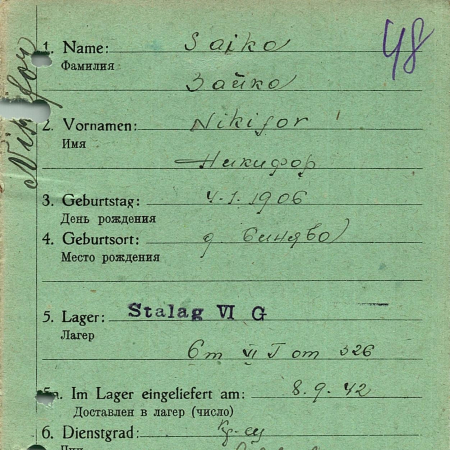 48
Nikifor
1. Name: Saiko
Фамилия
Зайко
2. Vornamen: Nikifor
Имя
Никифор
3. Geburtstag: 4.1.1906
День рождения
4. Geburtsort: д Синяво
Место рождения
5. Lager: Stalag VI G
Лагерь
326
5a. Im Lager eingeliefert am: 8.9.42
Доставлен в лагер (число)
6. Dienstgrad:
Чин